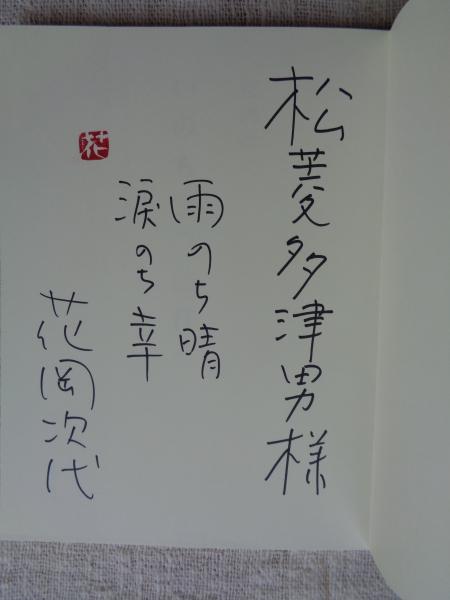 松菱多津男様
雨のち晴
涙のち幸
花岡次代
花